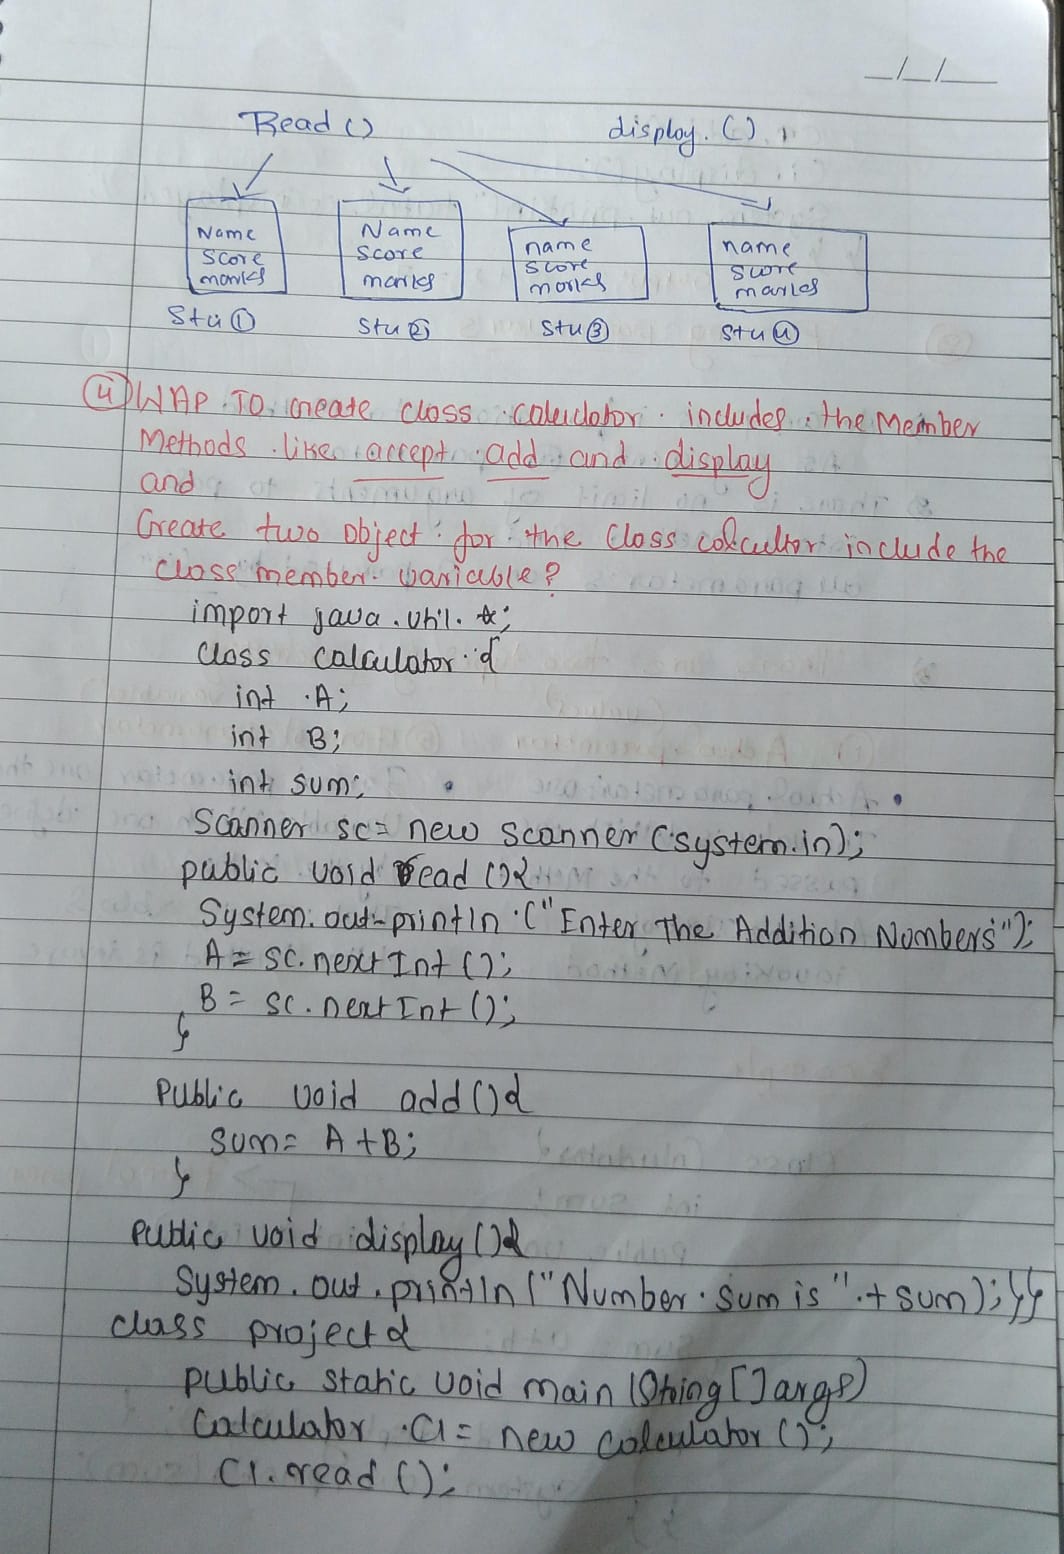 _/_/_
Read () display. ()
Name Name name name
Score Score score score
marks marks marks marks
Stu ① Stu ② Stu ③ Stu ④
④ WAP TO create class calculator includes the Member
Methods like accept add and display
and
Create two Object for the Class calcultor include the
class member variable?
import java.util.*;
class calculator {
int A;
int B;
int sum;
Scanner sc= new scanner (system.in);
public void read () {
System.out.println ("Enter The Addition Numbers");
A = sc.nextInt ();
B = sc.nextInt ();
}
Public void add () {
sum= A+B;
}
Public void display () {
System.out.println ("Number sum is "+ sum); }}
class project {
public static void main (String [] args)
Calculator C1 = new calculator ();
C1.read ();